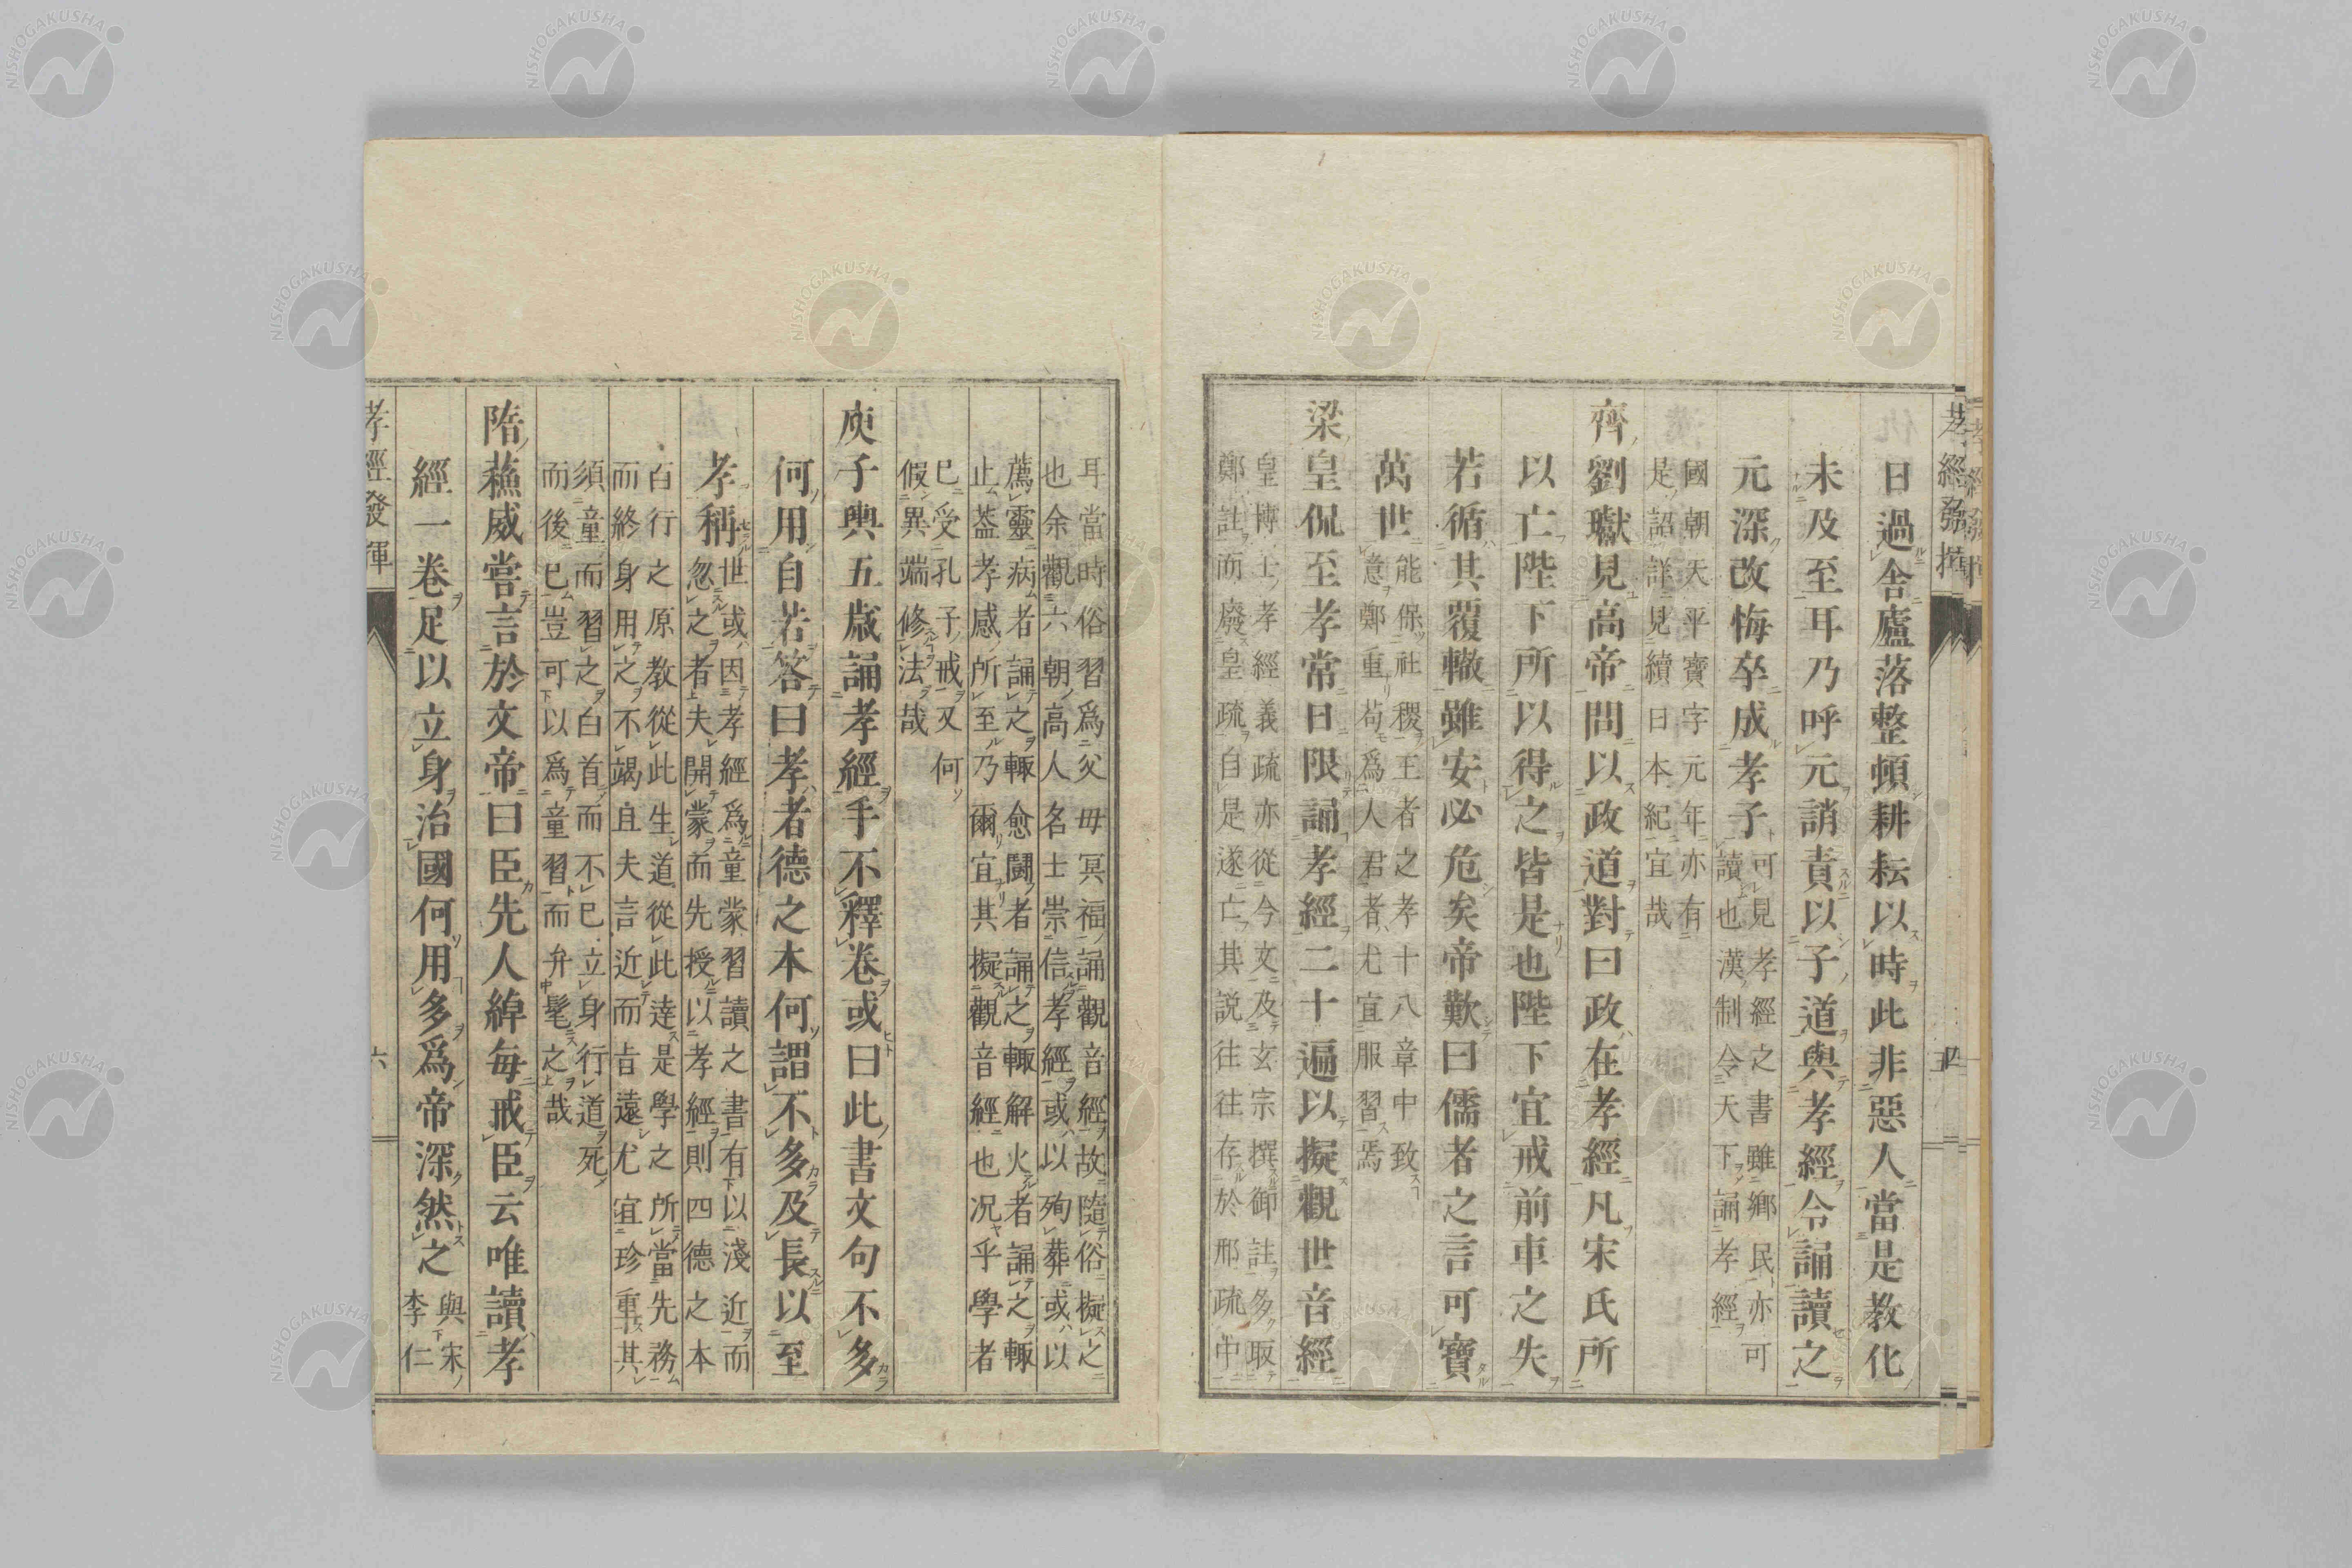 日過舍廬落整頓耕耘以時此非惡人當是教化
未及至耳乃呼元誚責以子道與孝經令誦讀之
元深改悔卒成孝子
可見孝經之書雖鄉民亦可
讀也漢制令天下誦孝經
國朝天平寶字元年亦有
是詔詳見續日本紀宜哉
齊劉瓛見高帝問以政道對曰政在孝經凡宋氏所
以亡陛下所以得之皆是也陛下宜戒前車之失
若循其覆轍雖安必危矣帝歎曰儒者之言可寶
萬世
能保社稷王者之孝十八章中致
意鄭重苟爲人君者尤宜服習焉
梁皇侃至孝常日限誦孝經二十遍以擬觀世音經
皇博士孝經義疏亦從今文及玄宗撰御註多取
鄭註而廢皇疏自是遂亡其説往往存於邢疏中
耳當時俗習爲父毋冥福誦觀音經故隨俗擬之
也余觀六朝高人名士崇信孝經或以殉葬或以
薦靈病者誦之輙愈鬪者誦之輙解火者誦之輙
止葢孝感所至乃爾宜其擬觀音經也况乎學者
巳受孔子戒又何
假異端修法哉
庾子輿五歲誦孝經手不釋卷或曰此書文句不多
何用自若答曰孝者德之本何謂不多及長以至
孝稱
世或因孝經爲童蒙習讀之書有以淺近而
忽之者夫開蒙而先授以孝經則四德之本
百行之原教從此生道從此達是學之所當先務
而終身用之不竭且夫言近而旨遠尤宜珍重其
須童而習之白首而不巳立身行道死
而後巳豈可以爲童習而弁髦之哉
隋蘓威嘗言於文帝曰臣先人綽毎戒臣云唯讀孝
經一卷足以立身治國何用多爲帝深然之
與宋
李仁
孝經發揮
六
NISHOGAKUSHA